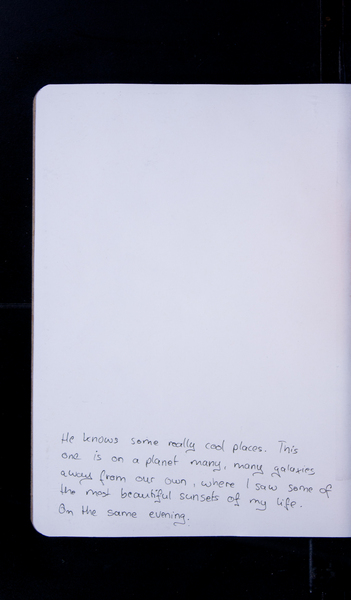 He knows some really cool places. This
one is on a planet many, many galaxies
away from our own, where I saw some of
the most beautiful sunsets of my life.
On the same evening.